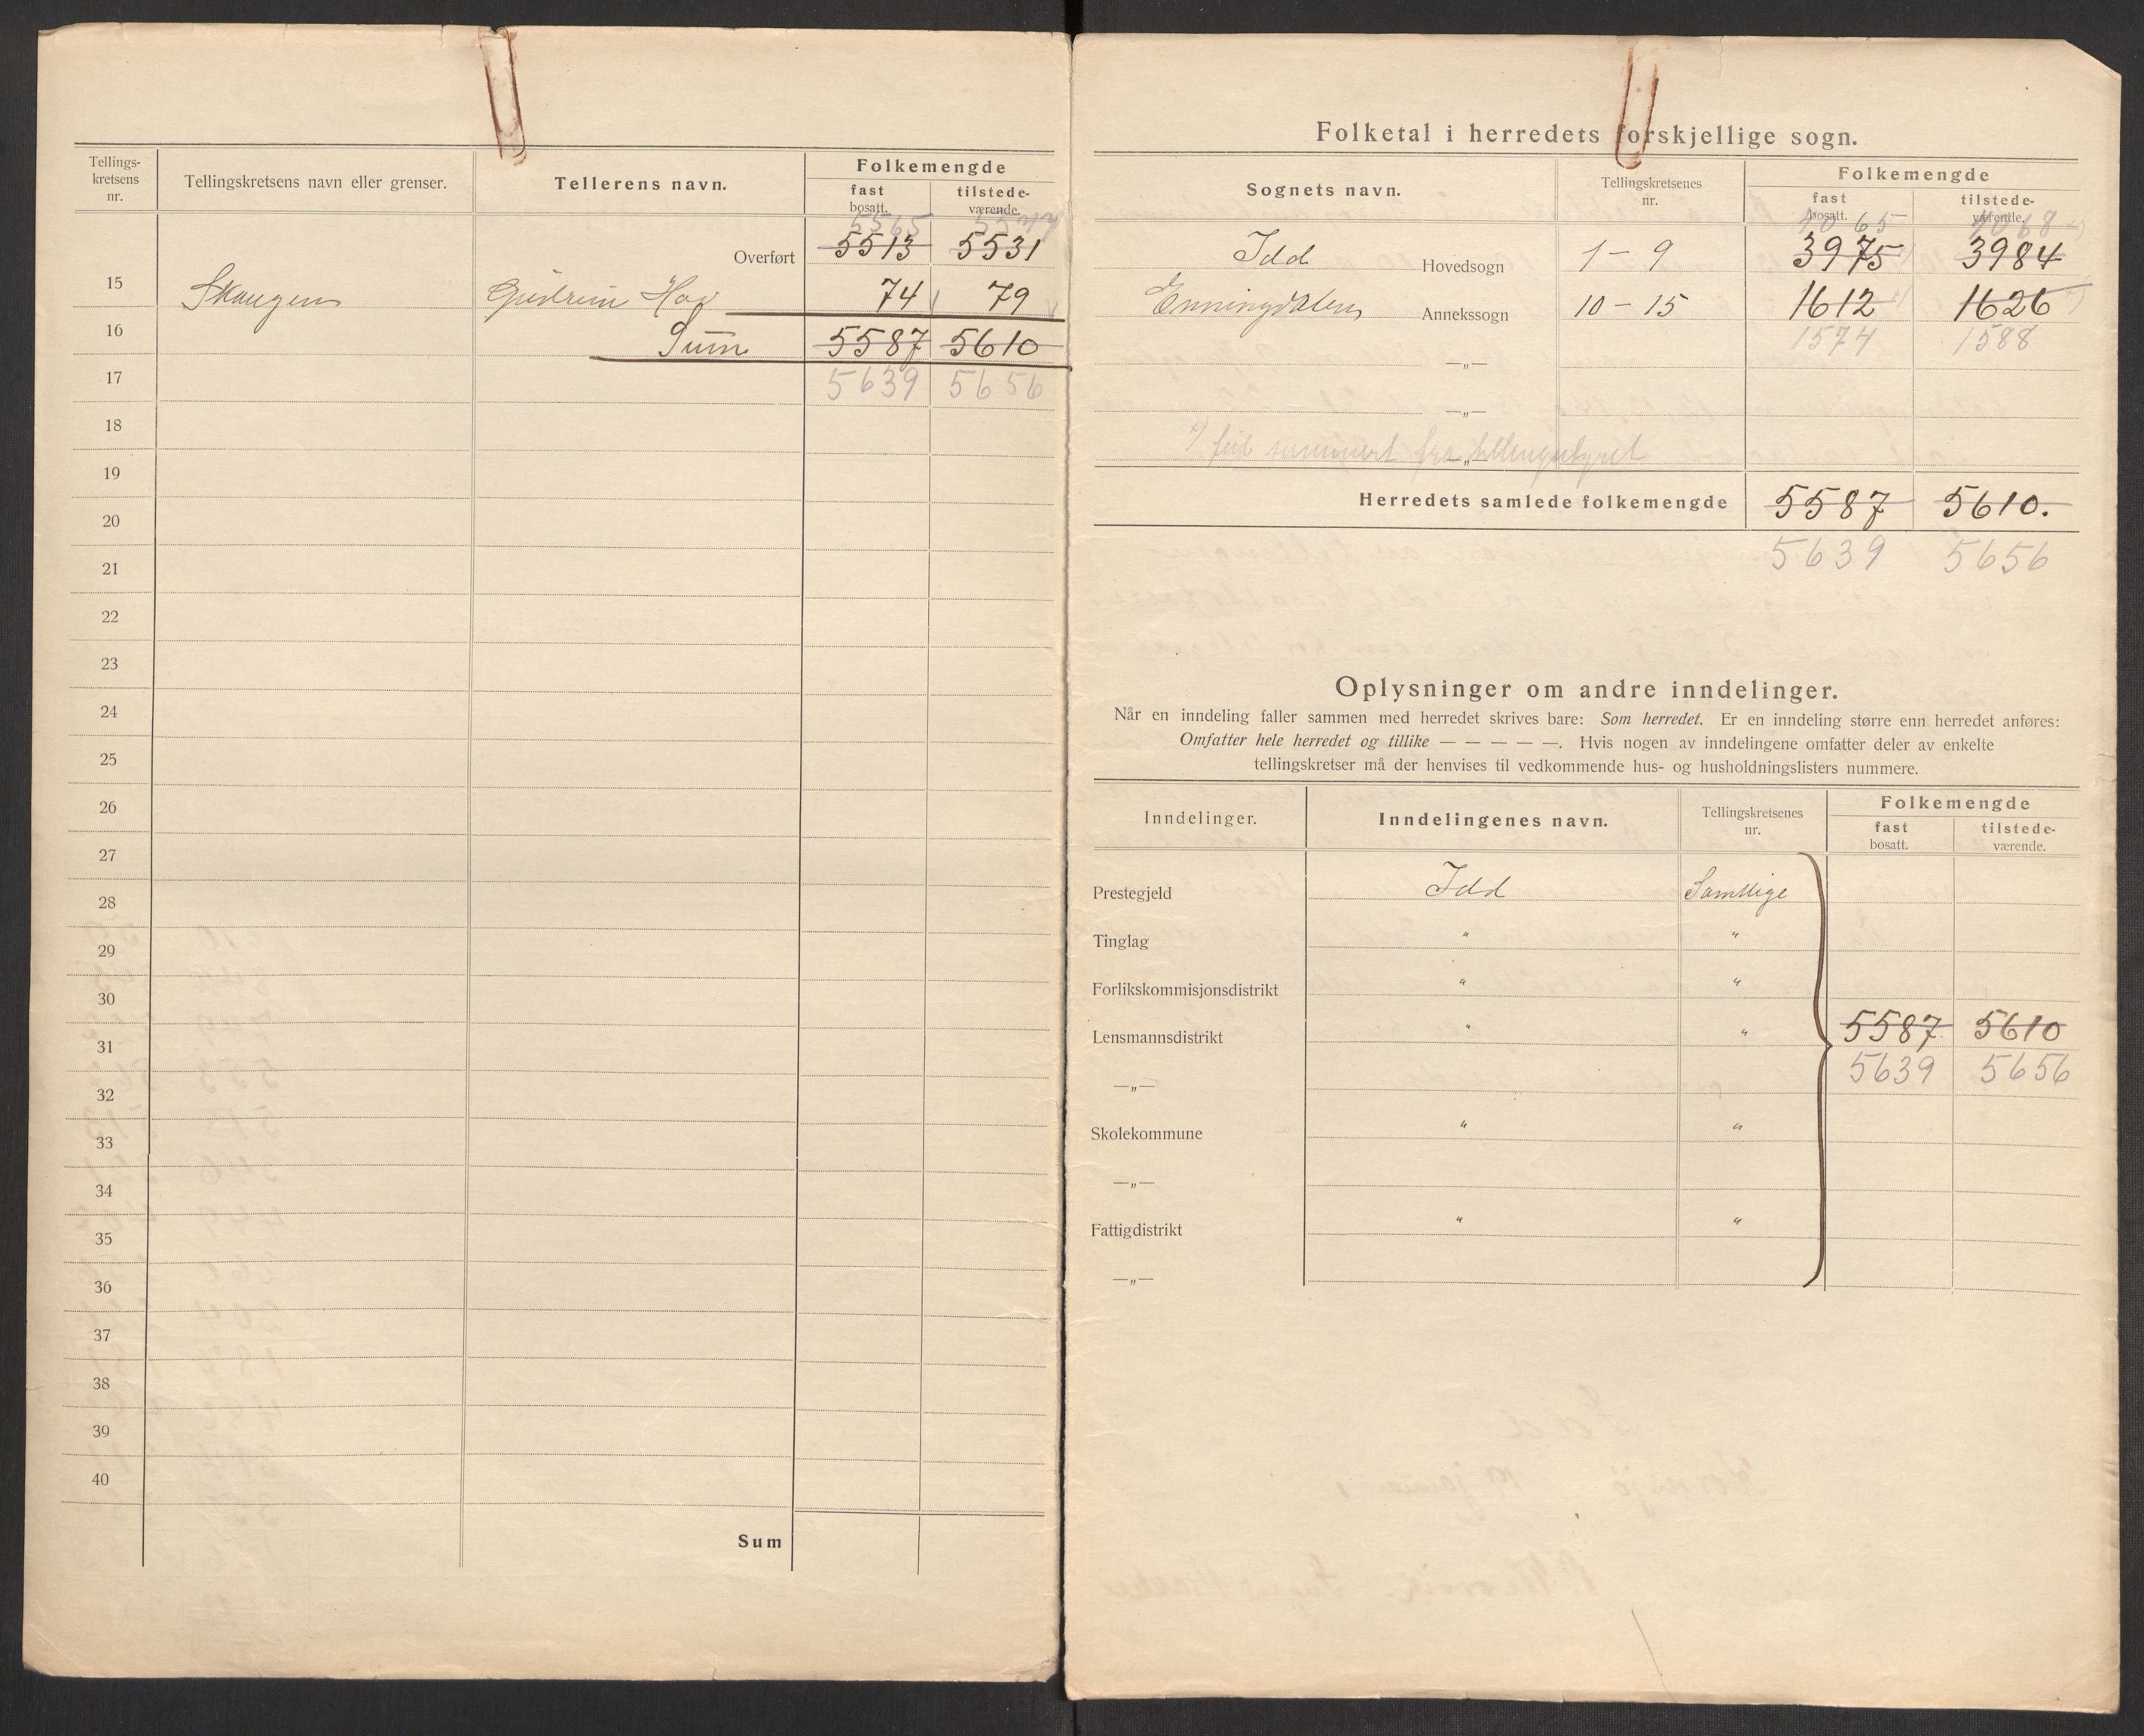 Tellings-
kretsens
nr.
Tellingskretsens navn eller grenser.
Tellerens navn.
Folkemengde
fast
bosatt.
tilstede-
værende.
5565 5577
Overført 5513 5531
15 Skaugen Gudrun Hov 74 79
16 Sum 5587 5610
17 5639 5656
18
19
20
21
22
23
24
25
26
27
28
29
30
31
32
33
34
35
36
37
38
39
40
Sum
Folketal i herredets forskjellige sogn.
Sognets navn.
Tellingskretsenes
nr.
Folkemengde
fast
bosatt.
tilstede-
værende.
4065 4068
Idd Hovedsogn 1 – 9 3975 3984
Enningdalen Annekssogn 10 – 15 1612 1626
—„— 1574 1588
—„—
x) feil summert fra tellingsstyret
—„—
Herredets samlede folkemengde 5587 5610.
5639 5656
Oplysninger om andre inndelinger.
Når en inndeling faller sammen med herredet skrives bare: Som herredet. Er en inndeling større enn herredet anføres:
Omfatter hele herredet og tillike — — — — —. Hvis nogen av inndelingene omfatter deler av enkelte
tellingskretser må der henvises til vedkommende hus- og husholdningslisters nummere.
Inndelinger.
Inndelingenes navn.
Tellingskretsenes
nr.
Folkemengde
fast
bosatt.
tilstede-
værende.
Prestegjeld Idd Samtlige
Tinglag " "
Forlikskommisjonsdistrikt " "
Lensmannsdistrikt " " 5587 5610
—„— 5639 5656
Skolekommune " "
—„—
Fattigdistrikt " "
—„—